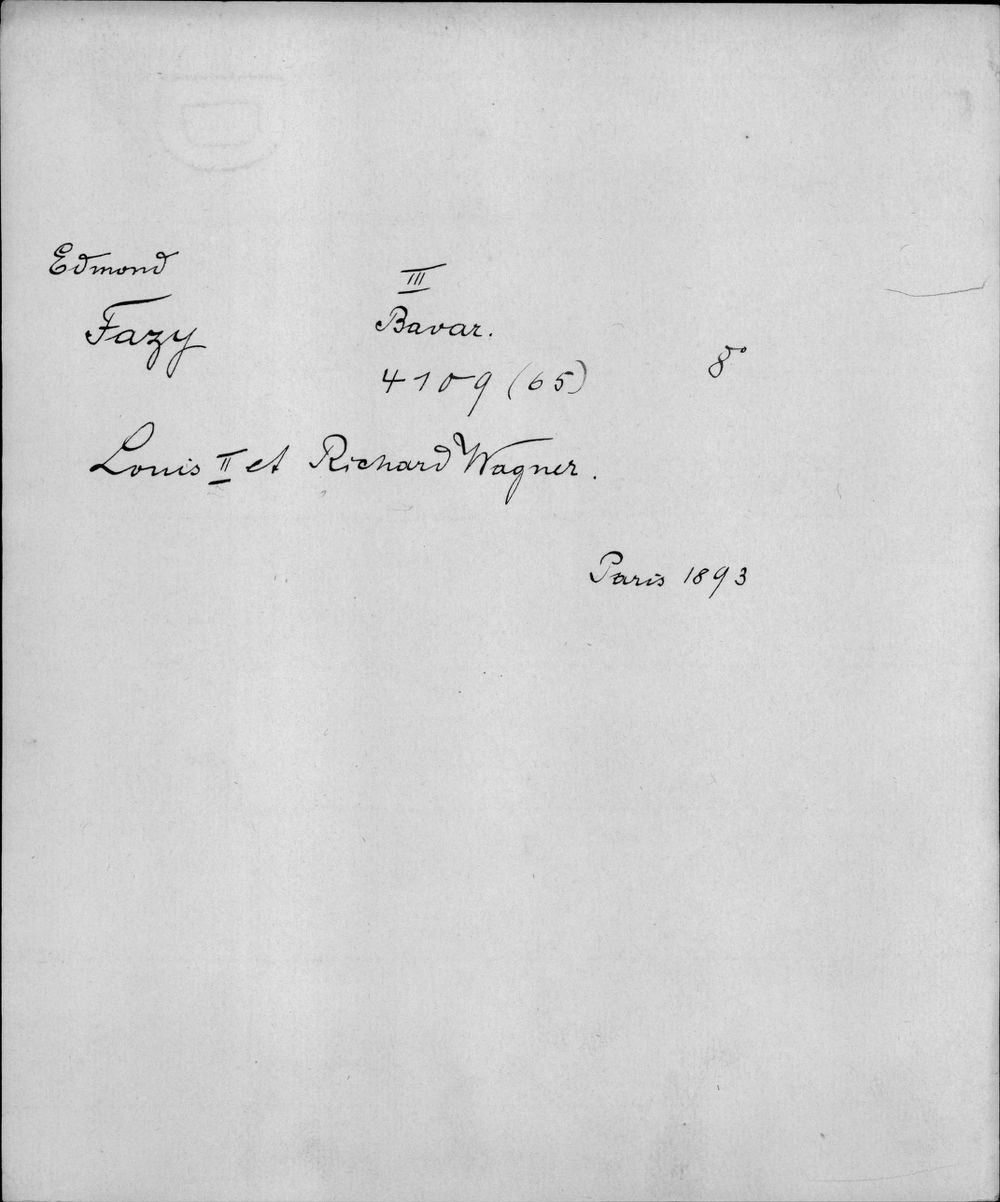 Edmond
Fazy
III
Bavar.
4109 (65)
8°
Louis II et Richard Wagner.
Paris 1893